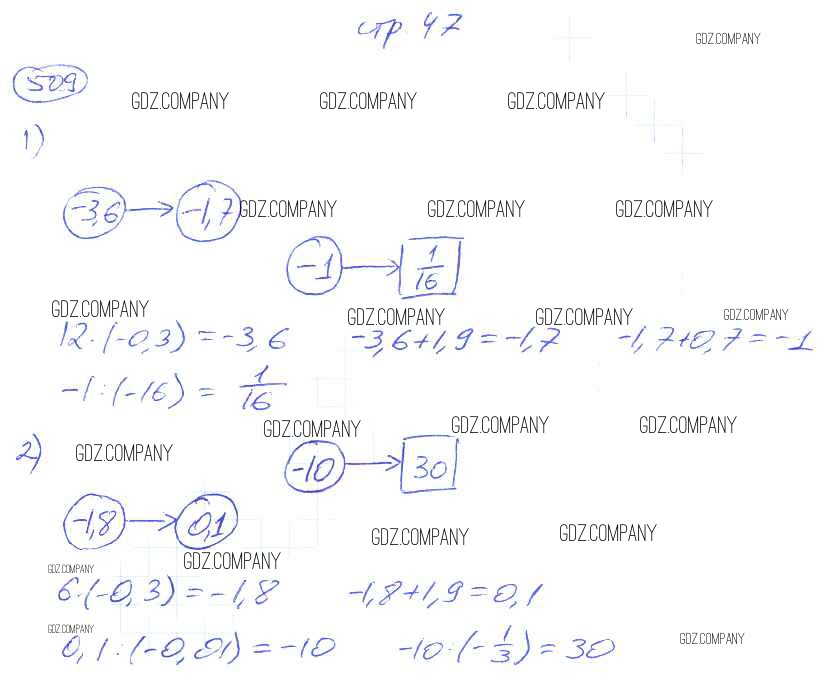 стр. 47
GDZ.COMPANY
509
GDZ.COMPANY GDZ.COMPANY GDZ.COMPANY
1)
-3,6 → -1,7 GDZ.COMPANY GDZ.COMPANY GDZ.COMPANY
-1 → 1/16
GDZ.COMPANY GDZ.COMPANY GDZ.COMPANY GDZ.COMPANY
12·(-0,3) = -3,6 -3,6+1,9 = -1,7 -1,7+0,7 = -1
-1:(-16) = 1/16
GDZ.COMPANY GDZ.COMPANY GDZ.COMPANY
2) GDZ.COMPANY -10 → 30
-1,8 → 0,1
GDZ.COMPANY GDZ.COMPANY
GDZ.COMPANY GDZ.COMPANY
6·(-0,3) = -1,8 -1,8+1,9 = 0,1
GDZ.COMPANY GDZ.COMPANY
0,1:(-0,01) = -10 -10·(-1/3) = 30